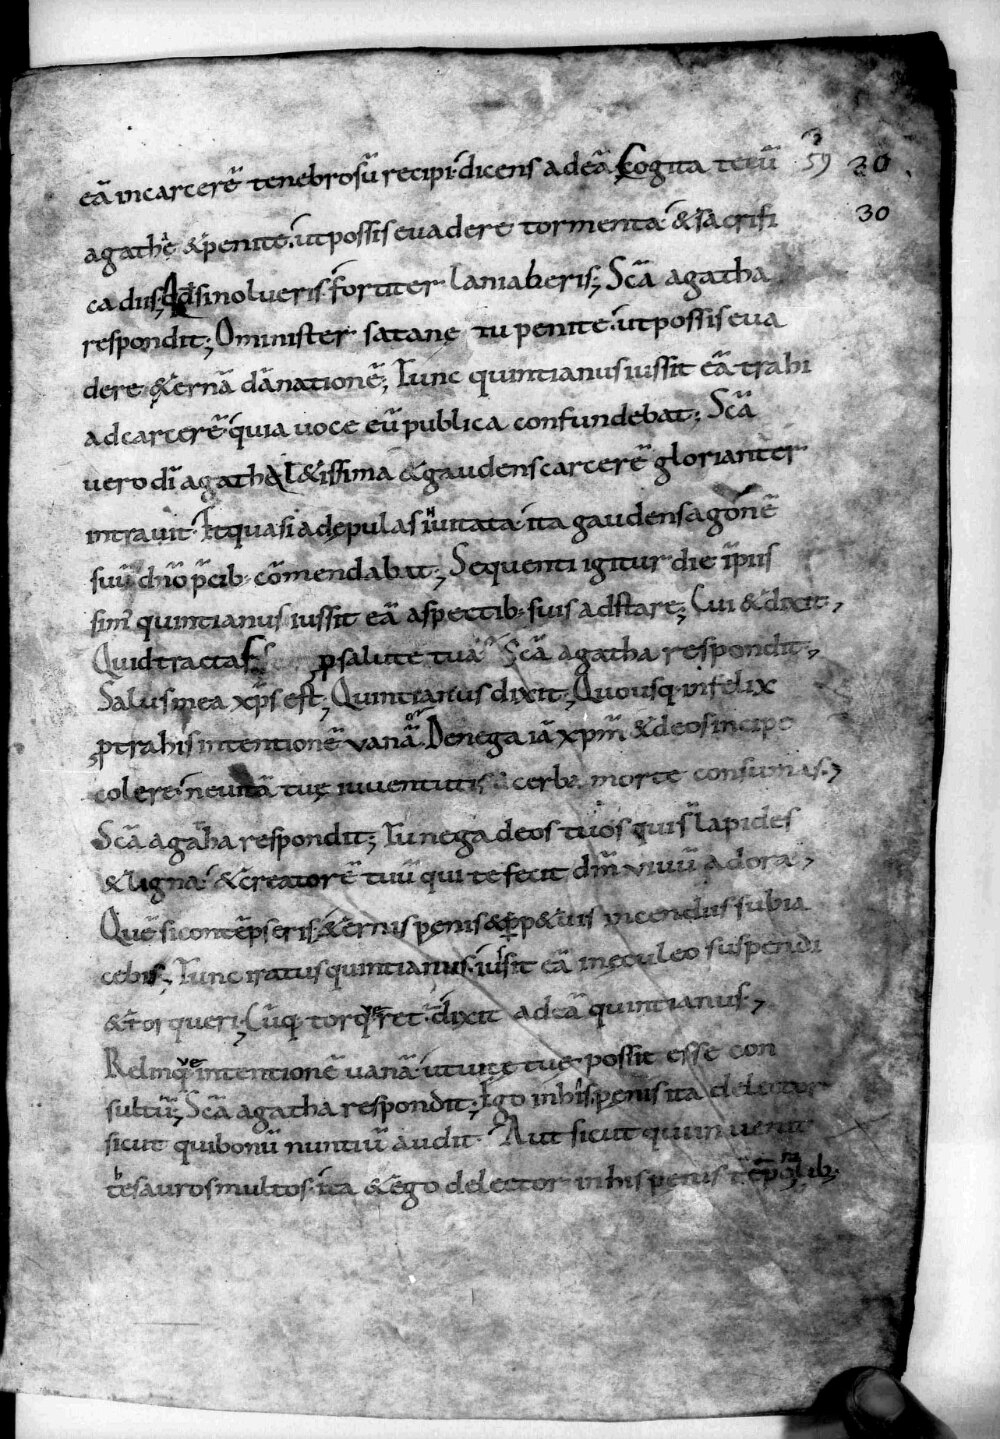 eā incarcerē tenebrosū recipi. dicens ad eā. Cogita tecū 59 30
30
agathę &penite. ut possis euadere tormenta. & sacrifi
ca diis; Qđ si nolueris. fortiter laniaberis; Scā agatha
respondit; O minister satane tu penite. ut possis eua
dere &ernā dānationē; Tunc quintianus iussit eā trahi
ad carcerē. quia uoce eū publica confundebat; Scā
uero dī agatha l&issima & gaudens carcerē glorianter
intrauit. Et quasi ad epulas inuitata. ita gaudens agonē
suū dño p̄cib; cōmendabat; Sequenti igitur die īpiis
simꝰ quintianus iussit eā aspectib; suis adstare; Cui & dixit;
Quid tractas ꝓ salute tua; Scā agatha respondit;
Salus mea xp̄s est; Quintianus dixit; Quousq; infelix
ꝓtrahis intentionē vanā. Denega iā xpm̄ & deos incipe
colere. ne uitā tuę iuuentutis acerba morte consumas;
Scā agatha respondit; Tu nega deos tuos qui s̄ lapides
& ligna. & creatorē tuū qui te fecit dm̄ viuū adora;
Quē si contēpseris. &ernis penis & ꝑp&uis incendiis subia
cebis; Tunc iratus quintianus. iussit eā in eculeo suspendi
& torqueri; Cūq; torquer&. dixit ad eā quintianus;
Relinque intentionē uanā. ut uitę tuę possit esse con
sultū; Scā agatha respondit; Ego in his penis ita delector
sicut qui bonū nuntiū audit. Aut sicut qui inuenit
thesauros multos. ita & ego delector in his penis